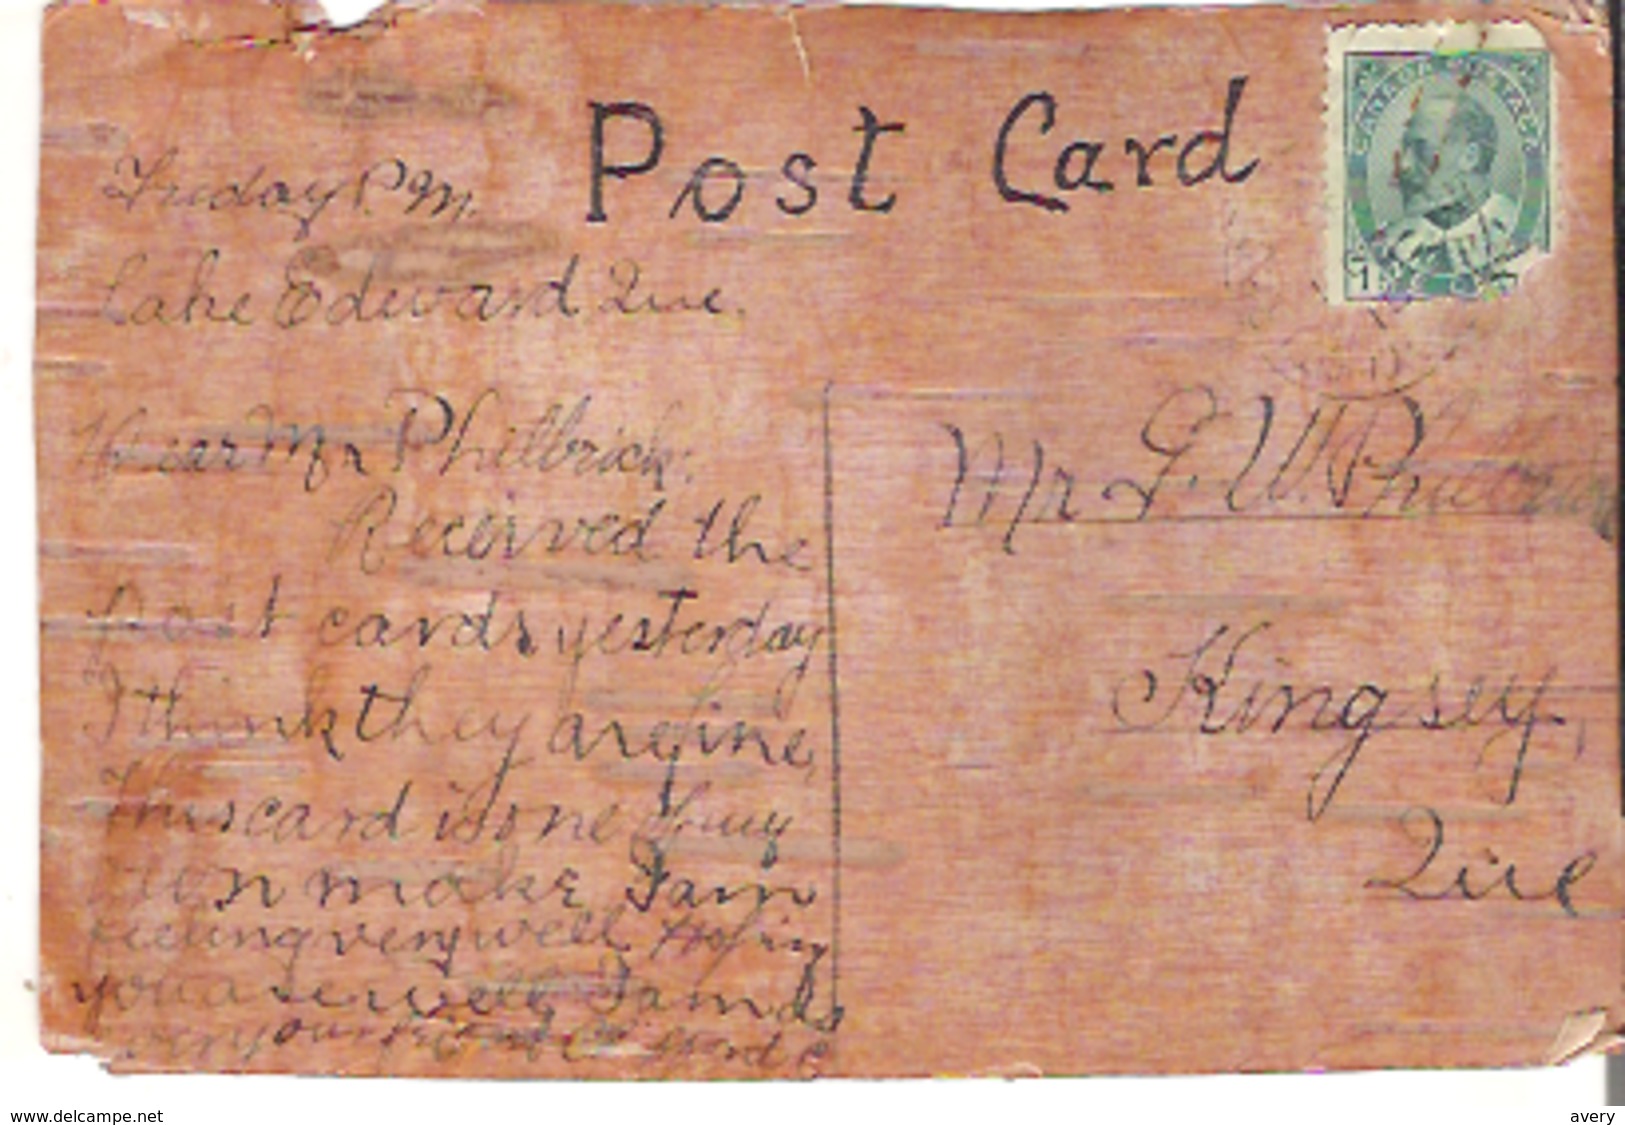 Post Card
Friday P.M.
Lake Edward, Que.
Dear Mr Philbrick:
Received the
post cards yesterday
I think they are fine,
This card is one of my
own make I am
feeling very well. Hoping
you are well, I am as
ever your friend
Mr G. W. Philbrick
Kingsey,
Que
CANADA POSTAGE
1
www.delcampe.net
avery